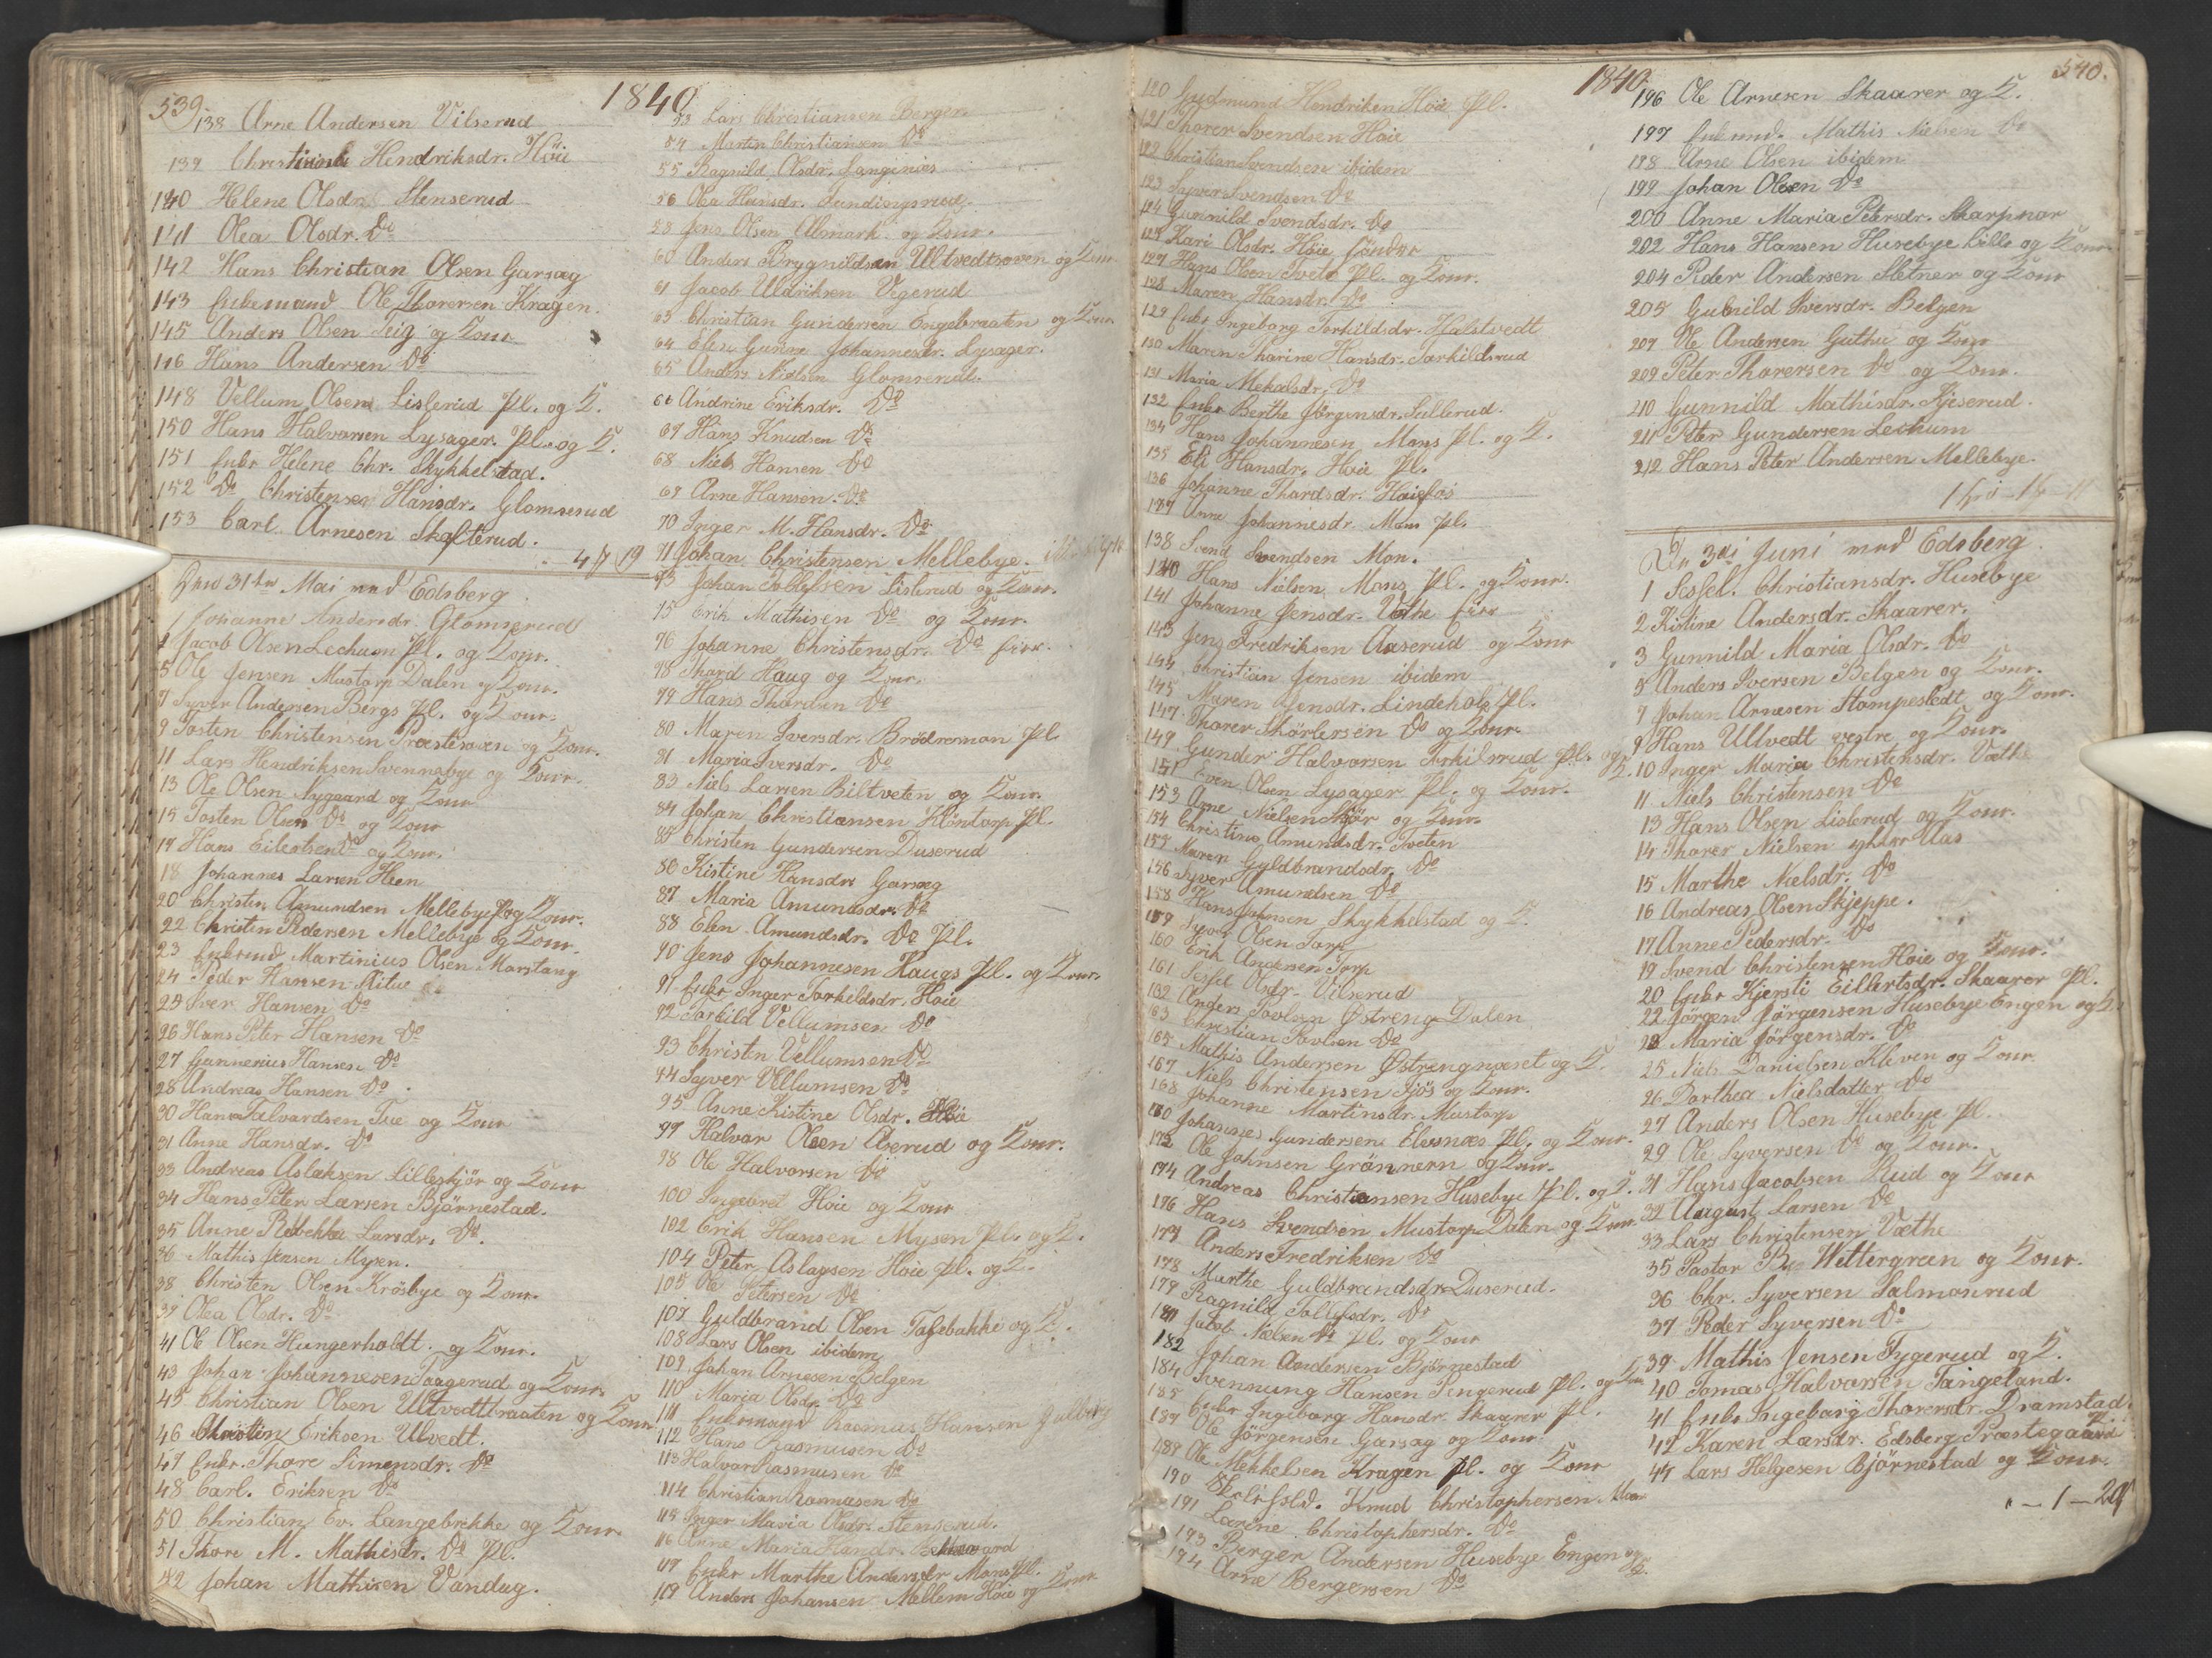 539
1840
138 Arne Andersen Vilserud
139 Christiane Hendriksdr. Höie
140 Helene Olsdr. Stenserud
141 Olea Olsdr. Do
142 Hans Christian Olsen Garsæg
143 Enkemand Ole Thorersen Kragen.
145 Anders Olsen Teig og Konr
146 Hans Andersen Do
148 Vellum Olsen Lislerud Pl. og K.
150 Hans Halvorsen Lysager. Pl. og K.
151 Enke Helene Chr. Skykkelstad.
152 Do Christensen Hansdr. Glomserud
153 Carl Arnesen Skofterud.
Den 31te Mai ved Edsberg
1 Johanne Andersdr. Glomserud
Jacob Olsen Lechum Pl. og Konr.
5 Ole Jensen Mustorp Dalen og Konr.
7 Syver Andersen Bergs Pl. og Konr.
9 Tosten Christensen Præsterøven og Konr.
11 Lars Hendriksen Svennebye og Konr.
13 Ole Olsen Nygaard og Konr
15 Tosten Olsen Do og Konr
17 Hans Eilertsen Do og Konr.
18 Johannes Larsen Heen
20 Christen Amundsen Mellebye Pl og Konr.
22 Christen Pedersen Mellebye og Konr.
23 Enkemd Martinius Olsen Morstang
24 Peder Hansen Kitue
25 Iver Hansen Do
26 Hans Peter Hansen Do
27 Gunnerius Hansen Do
28 Andreas Hansen Do
30 Hans Halvordsen Tue og Konr
31 Anne Hansdr. Do
33 Andreas Aslaksen Lilleskjör og Konr
34 Hans Peter Larsen Björnestad.
35 Anne Rebekka Larsdr. Do.
36 Mathis Jensen Mysen.
38 Christen Olsen Krösbye og Konr.
39 Olea Olsdr. Do
41 Ole Olsen Hungerholdt. og Konr.
43 Johan Johannesen Taagerud og Konr.
45 Christian Olsen Ultvedtbraaten og Konr.
46 Christin Eriksen Ulvedt.
47 Enke Thore Simensdr. Do
48 Carl. Eriksen Do
50 Christian Ev. Langebrekke og Konr.
51 Thore M. Mathisdr. Do Pl.
52 Johan Mathisen Vandug.
53 Lars Christiansen Berger
54 Martin Christiansen Do
55 Ragnild Olsdr. Langenæs
56 Olea Hansdr. Fundingsrud
58 Jens Olsen Olmark og Konr.
60 Anders Brygnildsen Ultvedtroven og Konr
61 Jacob Uldriksen Vegerud
63 Christian Gundersen Engebraaten og Konr
64 Elen Gurine Johannesdr. Lysager.
65 Anders Nielsen Glomserud.
66 Andrine Eriksdr. Do
67 Hans Knudsen Do
68 Niels Hansen Do
69 Arne Hansen. Do
70 Inger M. Hansdr. Do
71 Johan Christensen Mellebye.
73 Johan Tollefsen Lislerud og Konr.
75 Erik Mathisen Do og Konr.
76 Johanne Christensdr. Do
78 Thord Haug og Konr.
79 Hans Thordsen Do
80 Maren Iversdr. Brödremon Pl.
81 Maria Iversdr. Do
83 Niels Larsen Biltveten og Konr.
84 Johan Christiansen Klöntorp Pl.
85 Christen Gundersen Duserud
86 Kistine Hansdr. Garsæg
87 Maria Amundsdr. Do
88 Elen Amundsdr. Do Pl.
90 Jens Johannesen Haugs Pl. og Konr.
91 Enke Inger Torkildsdr. Höie
92 Torkild Vellumsen Do
93 Christen Vellumsen Do
94 Syver Vellumsen Do
95 Anne Kistine Olsdr. Höie
97 Halvor Olsen Aserud og Konr.
98 Ole Halvorsen Do
100 Ingebret Höie og Konr
102 Erik Hansen Mysen Pl. og K.
104 Peter Aslagsen Höie Pl. og K.
105 Ole Petersen Do
107 Guldbrand Olsen Tasebakke og K.
108 Lars Olsen ibidem
109 Johan Arnesen Belgen
110 Maria Olsdr. Do
111 Enkemand Rasmus Hansen Galberg
112 Hans Rasmusen Do
113 Halvor Rasmusen Do
114 Christian Rasmusen Do
115 Inger Maria Olsdr. Stenserud.
116 Anne Maria Handr.
117 Enke Marthe Andersdr Mons Pl.
119 Anders Johansen Mellem Höie og Konr
1840
540.
120 Gudmund Hendriksen Höie Pl.
121 Thorer Svendsen Höie
122 Christian Svendsen ibidem
123 Syver Svendsen Do
124 Gunnild Svendsdr. Do
125 Kari Olsdr. Höie Söndre
127 Hans Olsen Tvete Pl. og Konr.
128 Maren Hansdr. Do
129 Enke Ingeborg Torkildsdr. Halstvedt
130 Maren Tharine Hansdr. Torkildsrud
131 Maria Mekelsdr. Do
132 Enke Berthe Jörgensdr. Sullerud.
134 Hans Johannesen Mons Pl. og K.
135 Eli Hansdr. Höie Pl.
136 Johanne Thordsdr. Höiefos
137 Anne Johannesdr. Mons Pl.
138 Svend Svendsen Mon.
140 Hans Nielsen Mons Pl. og Konr.
141 Johanne Jensdr. Vothe
143 Jens Fredriksen Aaserud og Konr
144 Christian Jensen ibidem
145 Maren Jensdr. Lindehols Pl.
147 Thorer Thörlersen Do og Konr.
149 Gunder Halvorsen Torkilsrud Pl. og K.
151 Even Olsen Lysager Pl. og Konr.
153 Arne Nielsen Skjör og Konr.
154 Christine Amundsdr. Tveten
155 Maren Gyldbrandsdr. Do
156 Syver Amundsen Do
158 Hans Johnsen Skykkelstad og K.
159 Syver Olsen Torp
160 Erik Andersen Torp
161 Sessel Olsdr. Vilserud
162 Anders Povlsen Østreng Dalen
163 Christian Povlsen Do
165 Mathis Andersen Østrengnæset og K.
167 Niels Christensen Sjös og Konr.
168 Johanne Martinsdr. Mustorp
170 Johannes Gundersen Elvesnæs Pl. og Konr.
172 Ole Johnsen Grönnern og Konr.
174 Andreas Christiansen Husebye Pl. og K.
176 Hans Svendsen Mustorp Dalen og Konr.
177 Anders Fredriksen Do
178 Marthe Guldbrandsdr. Duserud.
179 Ragnild Tollefsdr. Do
181 Jakob Nielsen Do Pl. og Konr
182 Johan Andersen Björnestad
184 Svennung Hansen Tengerud Pl. og Kon
185 Enke Ingeborg Hansdr. Skaarer Pl.
187 Ole Jörgensen Garsæg og Konr.
189 Ole Mekkelsen Kragen Pl. og Konr
190 Knud Christophersen Mon
191 Larine Christophersdr. Do
193 Berger Andersen Husebye Engen og K.
194 Arne Bergersen Do
196 Ole Arnesen Skaarer og K.
197 Enkemd. Mathis Nielsen Do
198 Arne Olsen ibidem
199 Johan Olsen Do
200 Anne Maria Petersdr. Skarpnor
202 Hans Hansen Husebye Lille og Konr
204 Peder Andersen Sletner og Konr
205 Gunild Iversdr. Belgen
207 Ole Andersen Guthu og Konr
209 Peter Thorersen Do og Konr.
210 Gunnild Mathisdr. Kjeserud.
211 Peter Gundersen Lechum
212 Hans Peter Andersen Mellebye.
Den 3die Juni ved Edsberg
1 Sessel. Christiansdr. Husebye
2 Kistine Andersdr. Skaarer.
3 Gunnild Maria Olsdr. Do
5 Anders Iversen Belgen og Konr.
7 Johan Arnesen Stompestedt og Konr.
9 Hans Ullvedt vestre og Konr.
10 Inger Maria Christensdr. Væthe
11 Niels Christensen Do
13 Hans Olsen Lislerud og Konr.
14 Thorer Nielsen yttre Aas
15 Marthe Nielsdr. Do
16 Andreas Olsen Skjeppe.
17 Anne Pedersdr. Do
19 Svend Christensen Höie og Konr.
20 Enke Kjersti Eillertsdr. Skaarer Pl.
22 Jörgen Jörgensen Husebye Engen og K.
23 Maria Jörgensdr. Do
25 Niels Danielsen Kleven og Konr
26 Dorthea Nielsdatter Do
27 Anders Olsen Husebye Pl.
29 Ole Syversen Do og Konr.
31 Hans Jacobsen Rud og Konr
32 August Larsen Do
33 Lars Christensen Væthe
35 Pastor By Wettergreen og Konr.
36 Chr. Syversen Salmonrud
37 Peder Syversen Do
39 Mathis Jensen Tygerud og K.
40 Tomas Halvorsen Tangeland.
41 Enke Ingeborg Thorersdr. Dramstad.
42 Karen Larsdr. Edsberg Præstegaard
44 Lars Helgesen Björnestad og Konr.